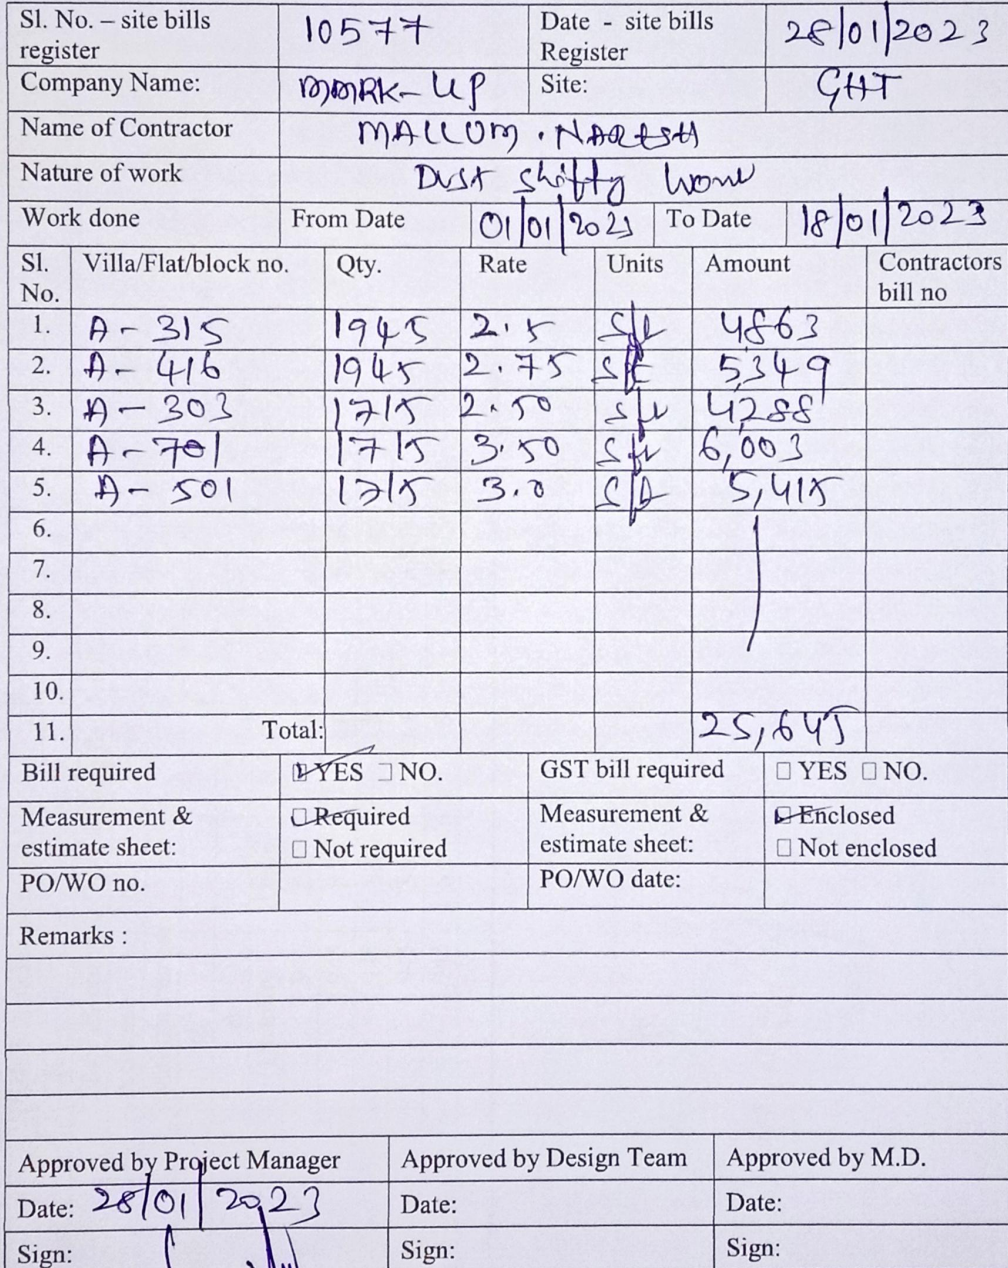 Sl. No. – site bills register 10577 Date - site bills Register 28/01/2023
Company Name: MMRK-UP Site: GHT
Name of Contractor MALLUM . NARESH
Nature of work Dust shifty work
Work done From Date 01/01/2023 To Date 18/01/2023
Sl. No. Villa/Flat/block no. Qty. Rate Units Amount Contractors bill no
1. A-315 1945 2.5 sft 4863
2. A-416 1945 2.75 sft 5349
3. A-303 1715 2.50 sft 4288
4. A-701 1715 3.50 sft 6,003
5. A-501 1715 3.0 sft 5,415
6.
7.
8.
9.
10.
11. Total: 25,645
Bill required YES NO. GST bill required YES NO.
Measurement & estimate sheet: Required Not required Measurement & estimate sheet: Enclosed Not enclosed
PO/WO no. PO/WO date:
Remarks :
Approved by Project Manager Approved by Design Team Approved by M.D.
Date: 28/01/2023 Date: Date:
Sign: Sign: Sign: